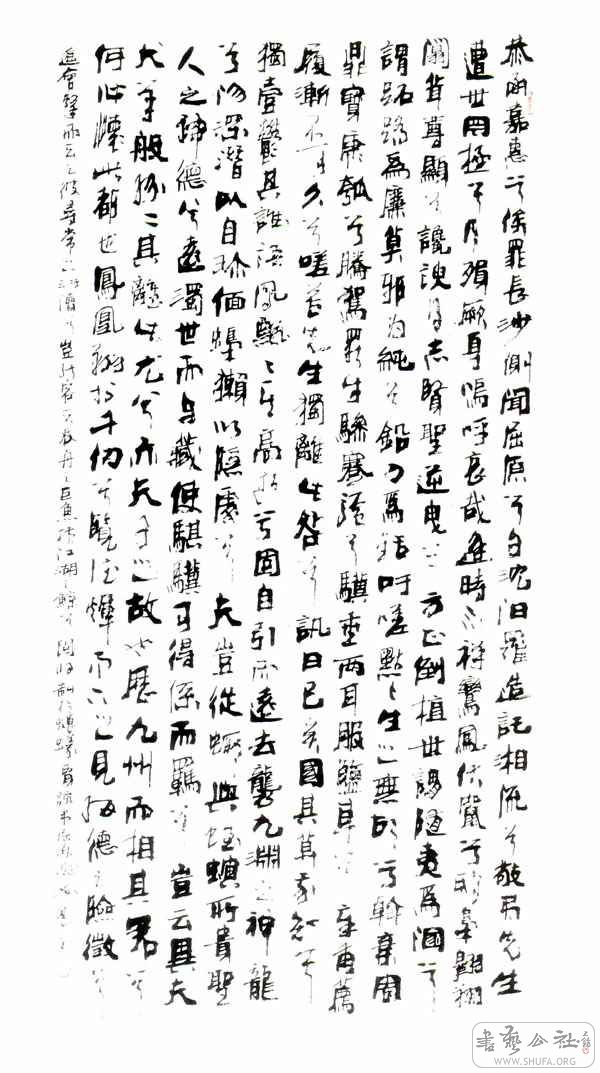 恭承嘉惠兮俟罪長沙側聞屈原兮自沈汨羅造託湘流兮敬弔先生
遭世罔極兮乃殞厥身嗚呼哀哉逢時不祥鸞鳳伏竄兮鴟梟翱翔
闒茸尊顯兮讒諛得志賢聖逆曳兮方正倒植世謂隨夷為溷兮
謂跖蹻為廉莫邪為鈍兮鉛刀為銛吁嗟默々生之無故兮斡棄周
鼎寶康瓠兮騰駕罷牛驂蹇驢兮驥垂兩耳服鹽車兮章甫薦
履漸不可久兮嗟苦先生獨離此咎兮訊曰已矣國其莫我知兮
獨壹鬱其誰語鳳縹々其高逝兮固自引而遠去襲九淵之神龍
兮沕深潛以自珍偭蟂獺以隱處兮夫豈從蝦與蛭螾所貴聖
人之神德兮遠濁世而自藏使騏驥可得係而羈兮豈云異夫
犬羊般紛々其離此尤兮亦夫子之故也歷九州而相其君兮
何必懷此都也鳳凰翔于千仞兮覽德煇而下之見細德之險徵兮
遙曾擊而去之彼尋常之汙瀆兮豈能容夫吞舟之巨魚橫江湖之鱣鯨兮固將制於螻蟻賈誼弔屈原
書藝公社
WWW.SHUFA.ORG